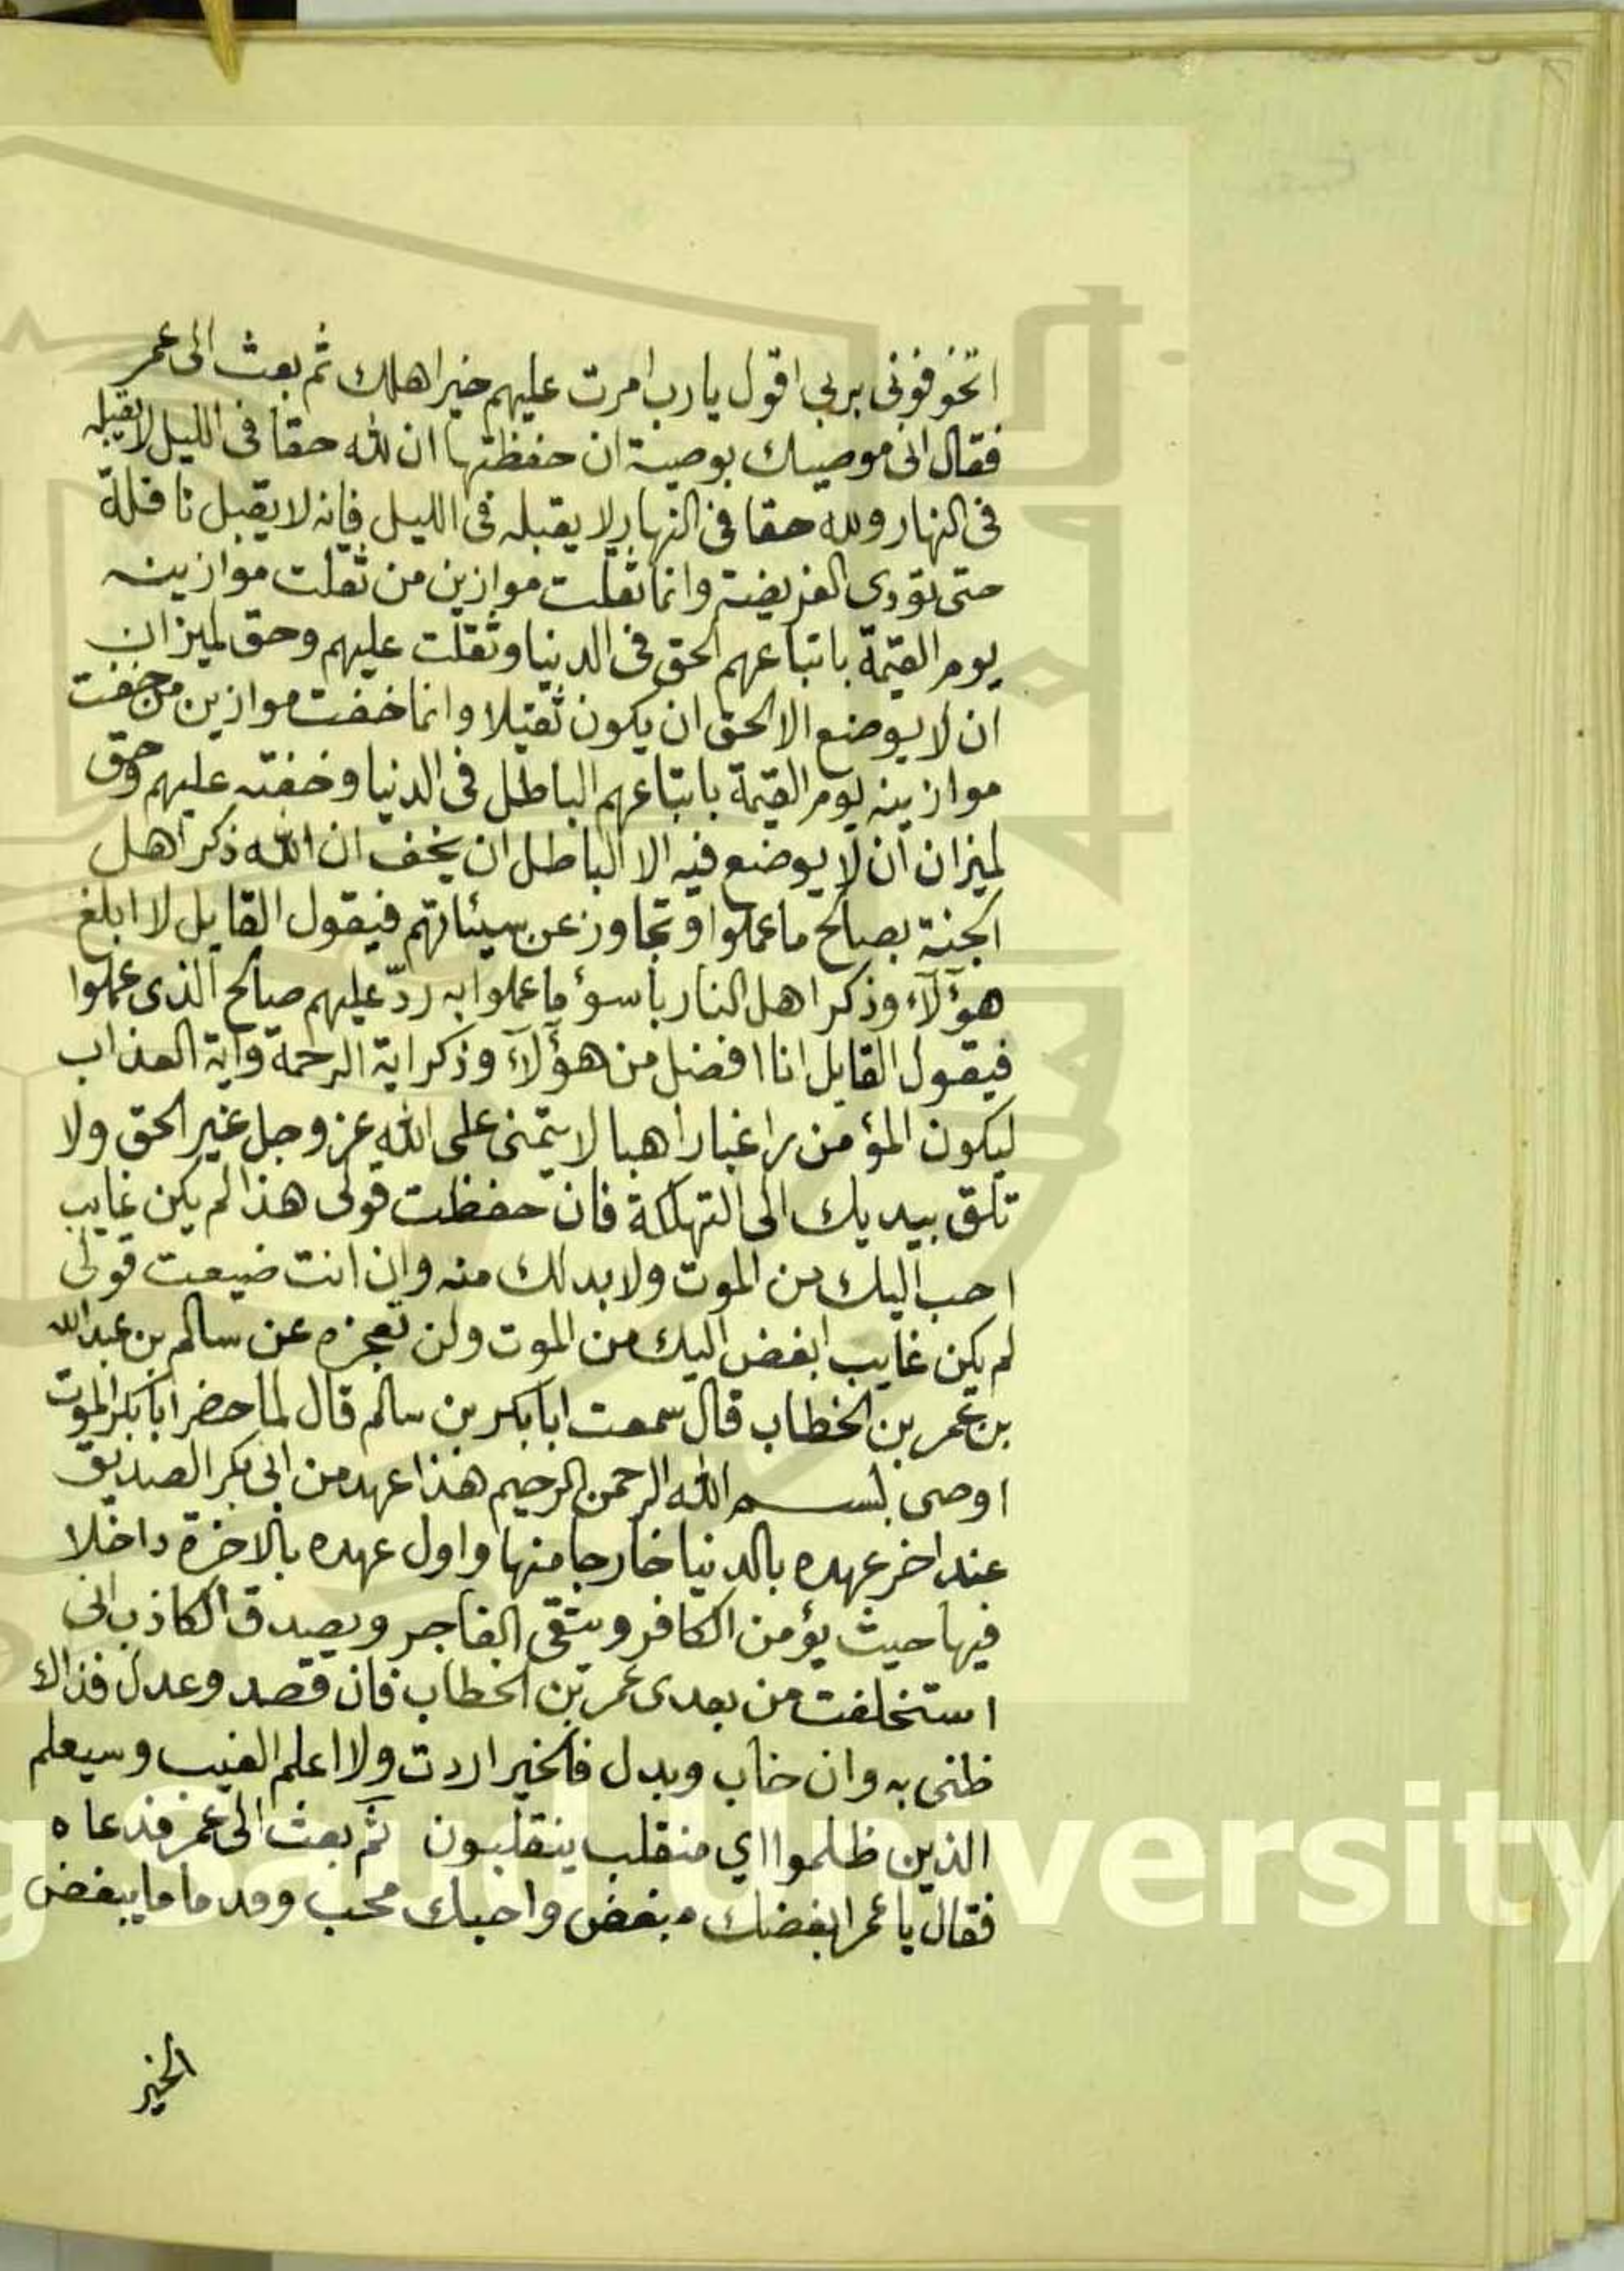 اتخوفونى بربى اقول يارب امرت عليهم خير اهلك ثم بعث الى عمر
فقال انى موصيك بوصية ان حفظتها ان لله حقا فى الليل لا يقبله
فى النهار ولله حقا فى النهار لا يقبله فى الليل فانه لا يقبل نافلة
حتى تؤدى الفريضة وانما ثقلت موازين من ثقلت موازينه
يوم القيمة باتباعهم الحق فى الدنيا وثقلت عليهم وحق لميزان
ان لا يوضع الا الحق ان يكون ثقيلا وانما خفت موازين من خفت
موازينه يوم القيمة باتباعهم الباطل فى الدنيا وخفته عليهم وحق
لميزان ان لا يوضع فيه الا الباطل ان يخف ان الله ذكر اهل
الجنة بصالح ما عملوا وتجاوز عن سيئاتهم فيقول القايل لا ابلغ
هؤلآء وذكر اهل النار باسوؤ ما عملوا به ردّ عليهم صالح الذى عملوا
فيقول القايل انا افضل من هؤلآء وذكر اية الرحمة وآية العذاب
ليكون المؤمن راغبا راهبا لا يتمنى على الله عز وجل غير الحق ولا
تلق بيديك الى التهلكة فان حفظت قولى هذا لم يكن غايب
احب اليك من الموت ولا بد لك منه وان انت ضيعت قولى
لم يكن غايب ابغض اليك من الموت ولن تعجزه عن سالم بن عبد الله
بن عمر بن الخطاب قال سمعت ابا بكر بن سالم قال لما حضر ابا بكر الموت
اوصى بسم الله الرحمن الرحيم هذا عهد من ابى بكر الصديق
عند اخر عهده بالدنيا خارجا منها واول عهده بالاخرة داخلا
فيها حيث يؤمن الكافر ويتقى الفاجر ويصدق الكاذب انى
استخلفت من بعدى عمر بن الخطاب فان قصد وعدل فذاك
ظنى به وان خاب وبدل فالخير اردت ولا اعلم الغيب وسيعلم
الذين ظلموا اي منقلب ينقلبون ثم بعث الى عمر فدعاه
فقال يا عمر ابغضك مبغض واحبك محب وقدما ما يبغض
الخير
King Saud University